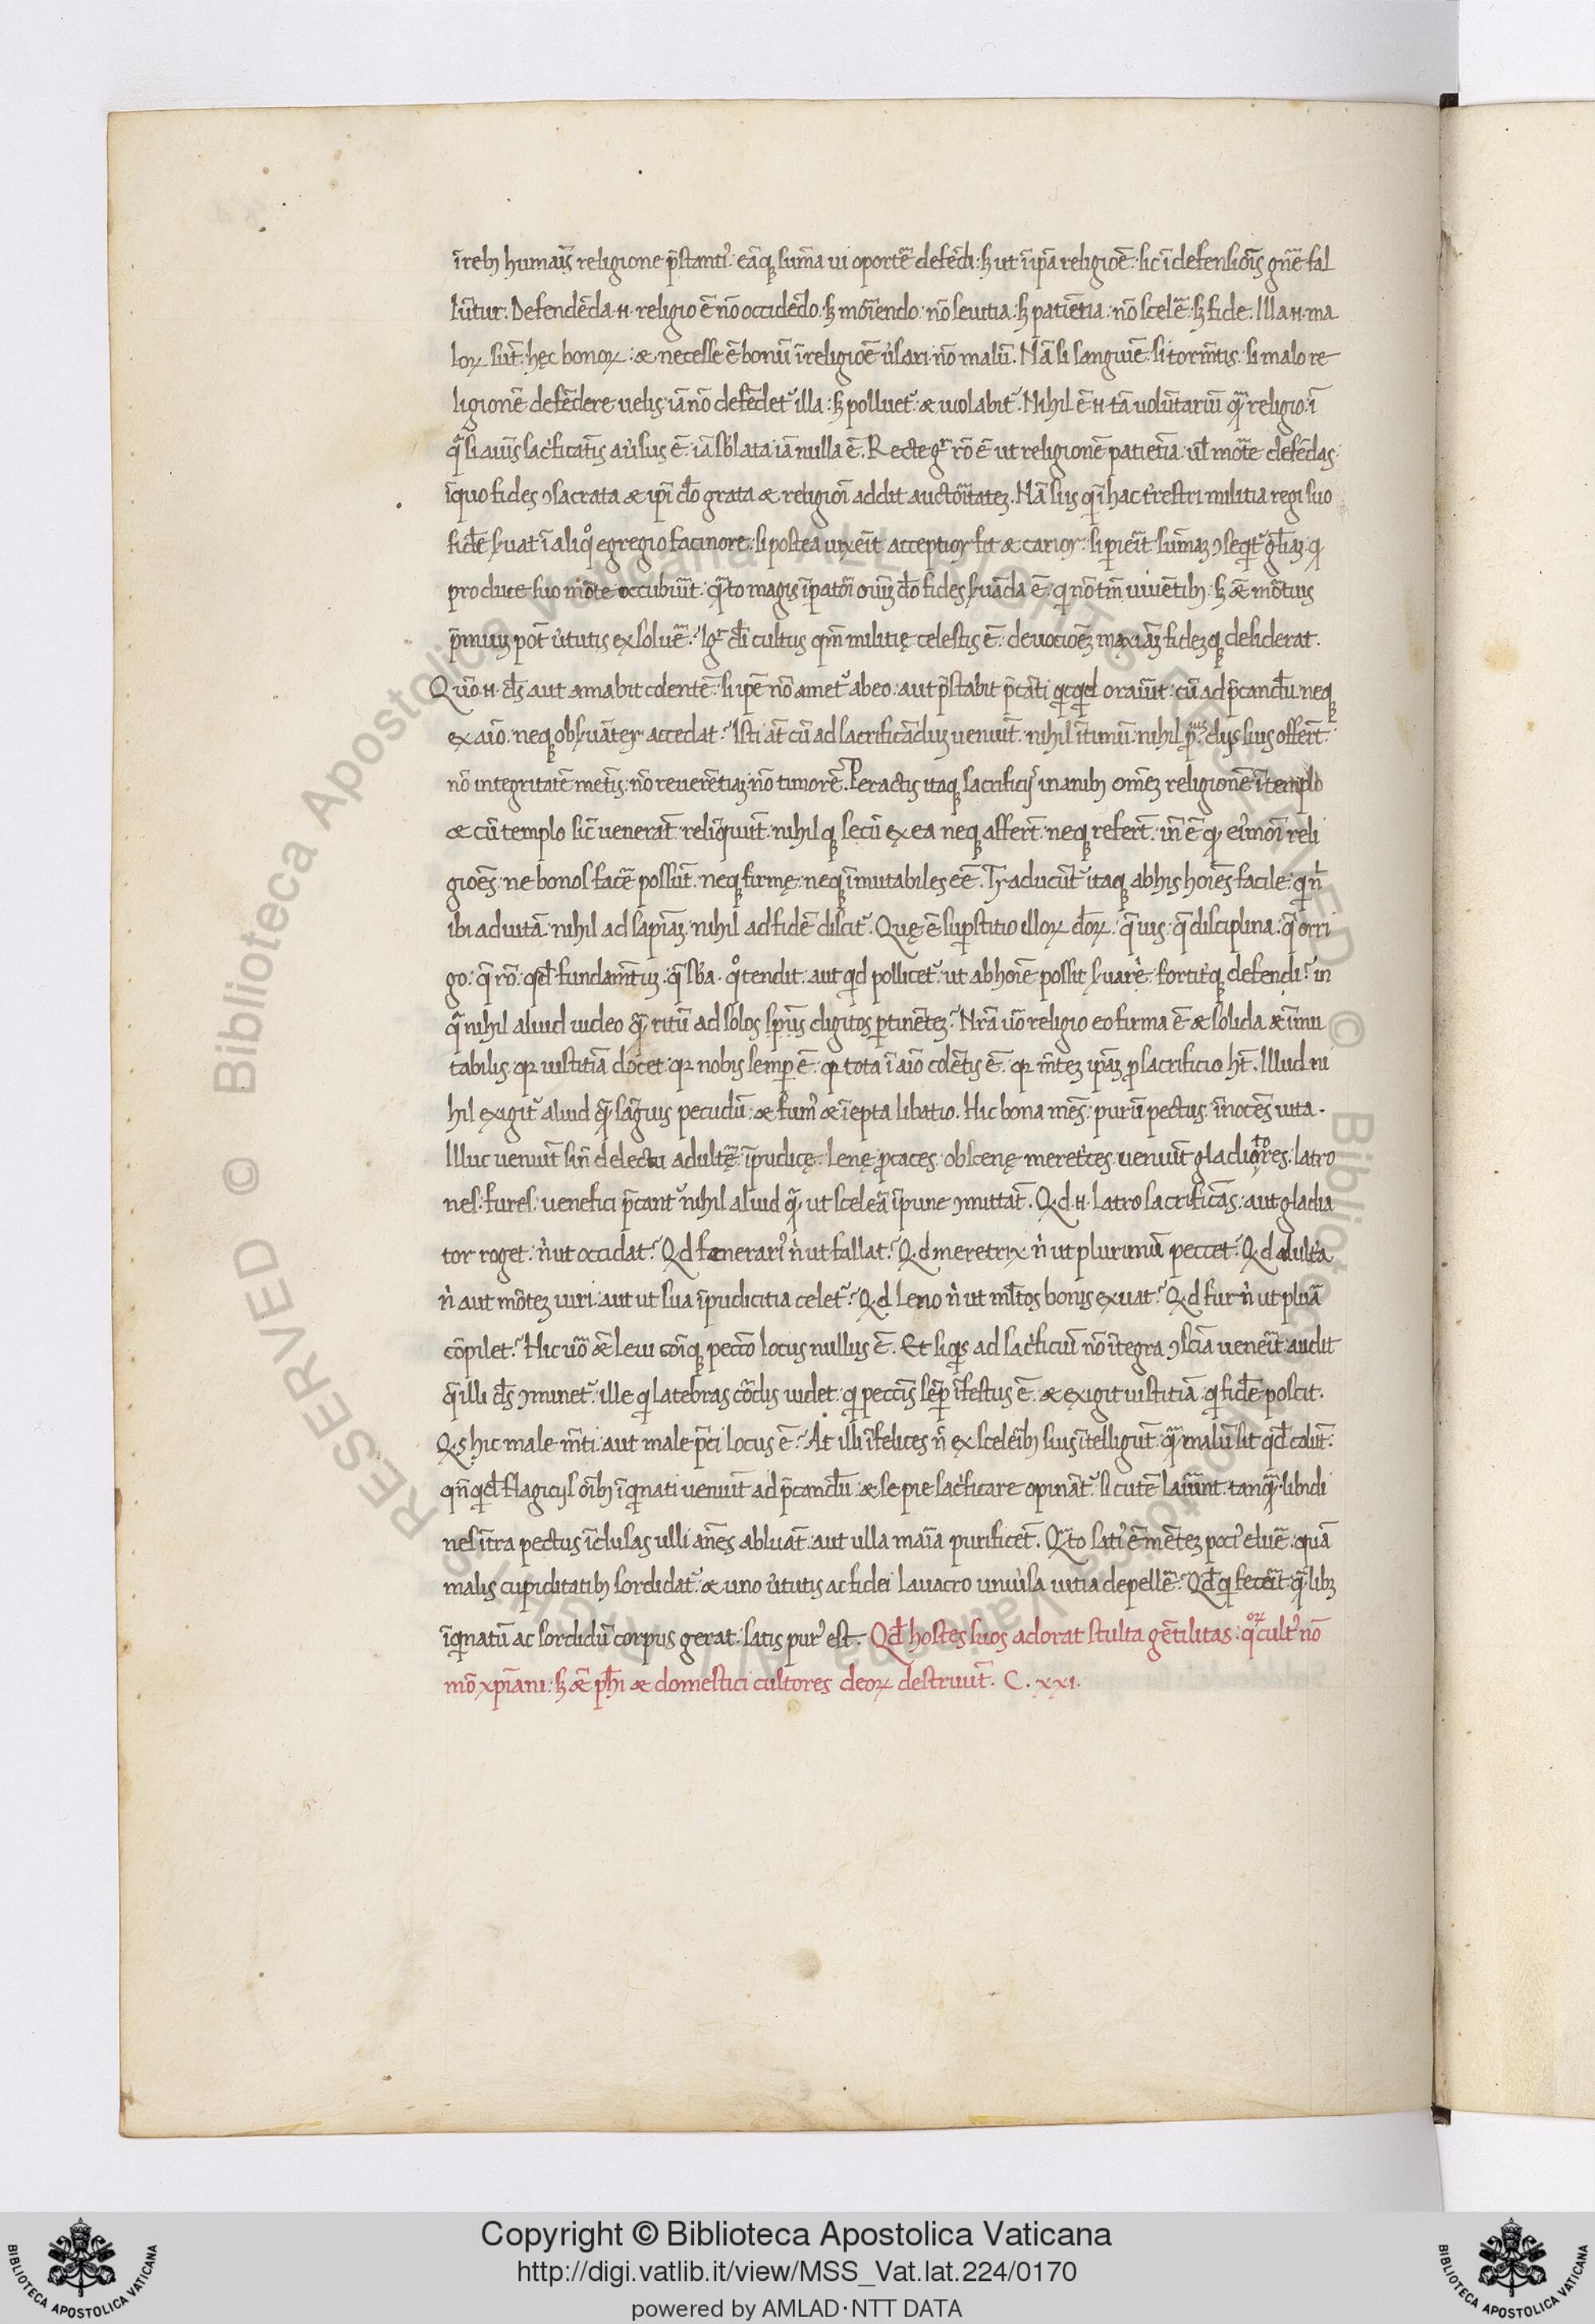 ī reb; humaīs religione p̄stanti᾽. eāq; sum̄a ui oportē defēdi: s; ut ī ip̄a religiōē: sic ī defensiōīs gn̄e fal
lūtur. Defendēda .n. religio ē nō occidēdo. s; morīendo: nō seuitia. s; patiētia. nō scelē: s; fide. Illa .n. ma
loꝝ sūt. hęc bonoꝝ: & necesse ē bonū ī religiōē u᾽sari. nō malū. Nā si sanguīe. si torm̄tis. si malo re
ligionē defēdere uelis. iā nō defēdet᾽ illa: s; polluet᾽ & uiolabit᾽. Nihil ē .n. tā volūtariū qᷓ religio. ī
qᷓ si auīs sac᾽ficātis au᾽sus ē. iā sb̄lata. iā nulla ē. Recte gͥ rō ē ut religionē patiētia. ul̄ mōte defēdas.
ī quo fides ꝯsacrata & ip̄i dō grata & religiōi addit auctōitateꝫ. Nā si is q̄ ī hac t᾽restri militia regi suo
fidē s᾽uat ī aliqͦ egregio facinore: si postea uixeīt acceptior fit & carior: si ꝑieīt sum̄aꝫ ꝯseqͥt᾽ gl̄iaꝫ. ꝙ
pro duce suo mōte occubuīt. qᷓto magis īpatōi oīuꝫ dō fides s᾽uāda ē. qͥ nō tm̄ uiuētib; s; &ē mōtuis
p̄miuꝫ pōt u᾽tutis exsoluē? Igͥ d̄i cultus qm̄ militię celestis ē. deuotiōeꝫ maxīaꝫ fideꝫq; desiderat.
Quō .n. d̄s aut amabit colentē. si ip̄e nō amet᾽ ab eo: aut p̄stabit p̄cāti qͥcqͥd oraūīt: cū ad p̄candū. neq;
ex aīo. neq; obs᾽uāter accedat? Isti āt cū ad sacrificādūꝫ ueniūt. nihil ītimū. nihil p̄ᵖⁱᵘˢ dijs suis offerūt.
nō integritatē mētis. nō reuerētiaꝫ. nō timorē. Peractis itaq; sacrificijs inanib; om̄eꝫ religionē ī templo
& cū templo sic̄ venerāt reliqͥuūt. nihilq; secū ex ea neq; afferūt. neq; referūt. in̄ ē ꝙ ei᾽mōi reli
giōēs: ne bonos facē possūt. neq; firmę. neq; īmutabiles e͞e. Traducūt᾽ itaq; ab his hoīes facile: qͥ n̄l
ibi ad uitā. nihil ad sapiāꝫ. nihil ad fidē discit᾽. Quę ē suꝑstitio illoꝝ d̄oꝝ. q̄ uis. q̄ disciplina. q̄ orri
go: q̄ rō. qd̄ fundam̄tuꝫ. q̄ sb̄a. qͦ tendit. aut qͥd pollicet᾽. ut ab hoīe possit s᾽uarᵉ fortit᾽q; defendi? in
qᷓ nihil aliud uideo qᷓ ritū ad solos sp̄us digitos ꝑtinēteꝫ? Nr̄a ūo religio eo firma ē & solida & īmu
tabilis. qꝛ iustitiā docet. qꝛ nobis semꝑ ē. qꝛ tota ī aīo colētis ē. qꝛ m̄teꝫ ip̄aꝫ ꝓ sacrificio h̄t. Illud ni
hil exigit᾽ aliud qᷓ sāguis pecudū. & fum᾽ & īepta libatio. Hic bona mēs. purū pectus. īnocēs uita.
Illuc ueniūt sin̄ delectu adultę. īpudicę. lenę ꝓcaces. obscenę meret᾽ces. ueniūt gladiatores. latro
nes. fures. uenefici p̄cant᾽ nihil aliud qᷓ ut sceleā īpune ꝯmittāt. Qͥd .n. latro sacrificās: aut gladia
tor roget: n̄ ut occidat? Qͥd fœnerari᾽ n̄ ut fallat? Qͥd meretrix n̄ ut plurimū peccet? Qͥd adult᾽a
n̄ aut mōteꝫ uiri: aut ut sua īpudicitia celet᾽? Qͥd leno n̄ ut ml̄tos bonis exuat? Qͥd fur n̄ ut pluā
cōpilet? Hic ūo &ē leui cōīq; peccō locus nullus ē. Et si qͥs ad sac᾽ficiū nō ītegra ꝯsciā ueneīt. audit
q̄ illi d̄s ꝯminet᾽. ille qͥ latebras cōdis uidet. qͥ peccīs sēꝑ īfestus ē. & exigit iustitiā. qͥ fidē poscit.
Qͥs hic male m̄ti. aut male p̄ci locus ē? At illi īfelices n̄ ex sceleīb; suis ītelligūt. qᷓ malū sit qd̄ colūt:
qn̄qͥdē flagicijs oīb; īqͥnati ueniūt ad p̄candū. & se pie sac᾽ficare opināt᾽. si cutē laūīnt. tanqᷓ libidi
nes ītra pectus īclusas ulli an̄es abluāt. aut ulla maīa purificēt. Qᷓto sati᾽ ē mēteꝫ poci᾽ eluē. quā
malis cupiditatib; sordidat᾽. & uno u᾽tutis ac fidei lauacro uniu᾽sa uitia depellē? Qd̄ qͥ feceīt. qᷓlib;
īqͥnatū ac sordidū corpus gerat. satis pur᾽ est. Qd̄ hostes suos adorat stulta gētilitas: qͦoꝝ cult᾽ nō
mō xp̄iani. s; &ē ph̄i & domestici cultores deoꝝ destruūt. C. xxi.
Copyright © Biblioteca Apostolica Vaticana
http://digi.vatlib.it/view/MSS_Vat.lat.224/0170
powered by AMLAD·NTT DATA
BIBLIOTECA APOSTOLICA VATICANA
BIBLIOTECA APOSTOLICA VATICANA